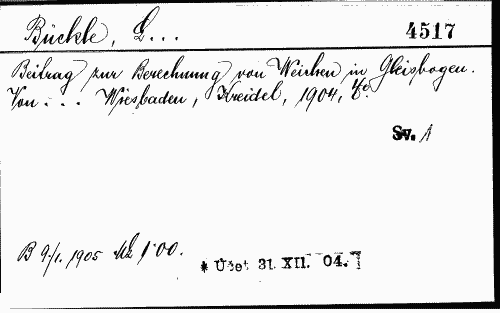 Bückle, L... 4517
Beitrag zur Berechnung von Weichen in Gleisbogen.
Von ... Wiesbaden, Kreidel, 1904, 4o.
Sv. 1
B 9/1. 1905 Mk 1·00.
* Účet 31. XII. 04.